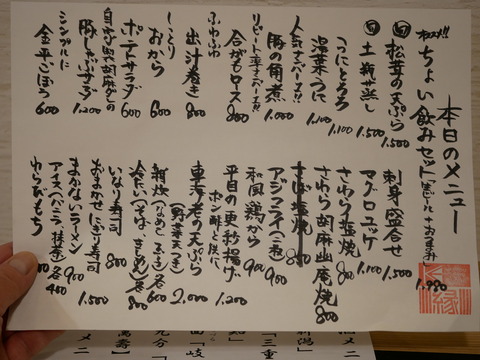 本日のメニュー
オススメ!! ちょい飲みセット
1,980
旬 松茸の天ぷら 1,500
旬 土瓶蒸し 1,500
うにとろろ 1,100
湯葉うに 1,100
人気ナンバー1!! 豚の角煮 1,000
リピート率ナンバー1!! 合がもロース 800
ふわふわ 出汁巻き 800
しっとり おから 600
ポテトサラダ 600
自家製胡麻だれの 豚しゃぶサラダ 1,200
シンプルに 金平ごぼう 600
刺身盛合せ 1,500
マグロユッケ 1,100
さわら塩焼 800
さわら胡麻幽庵焼 800
さば塩焼
アジフライ(二枚)
和風鶏から 900
平目の更紗揚げ ポン酢と共に 1,200
車海老の天ぷら (野菜天つき) 2,000
雑炊(なめこ・ふき)各 600
冷たい(そば・きしめん)各 800
いなり寿司 800
おまかせにぎり寿司 1,500
まかないラーメン 900
アイス(バニラ・抹茶)各 400
わらびもち
縁
新潟」
「三重
知」
曲「岐